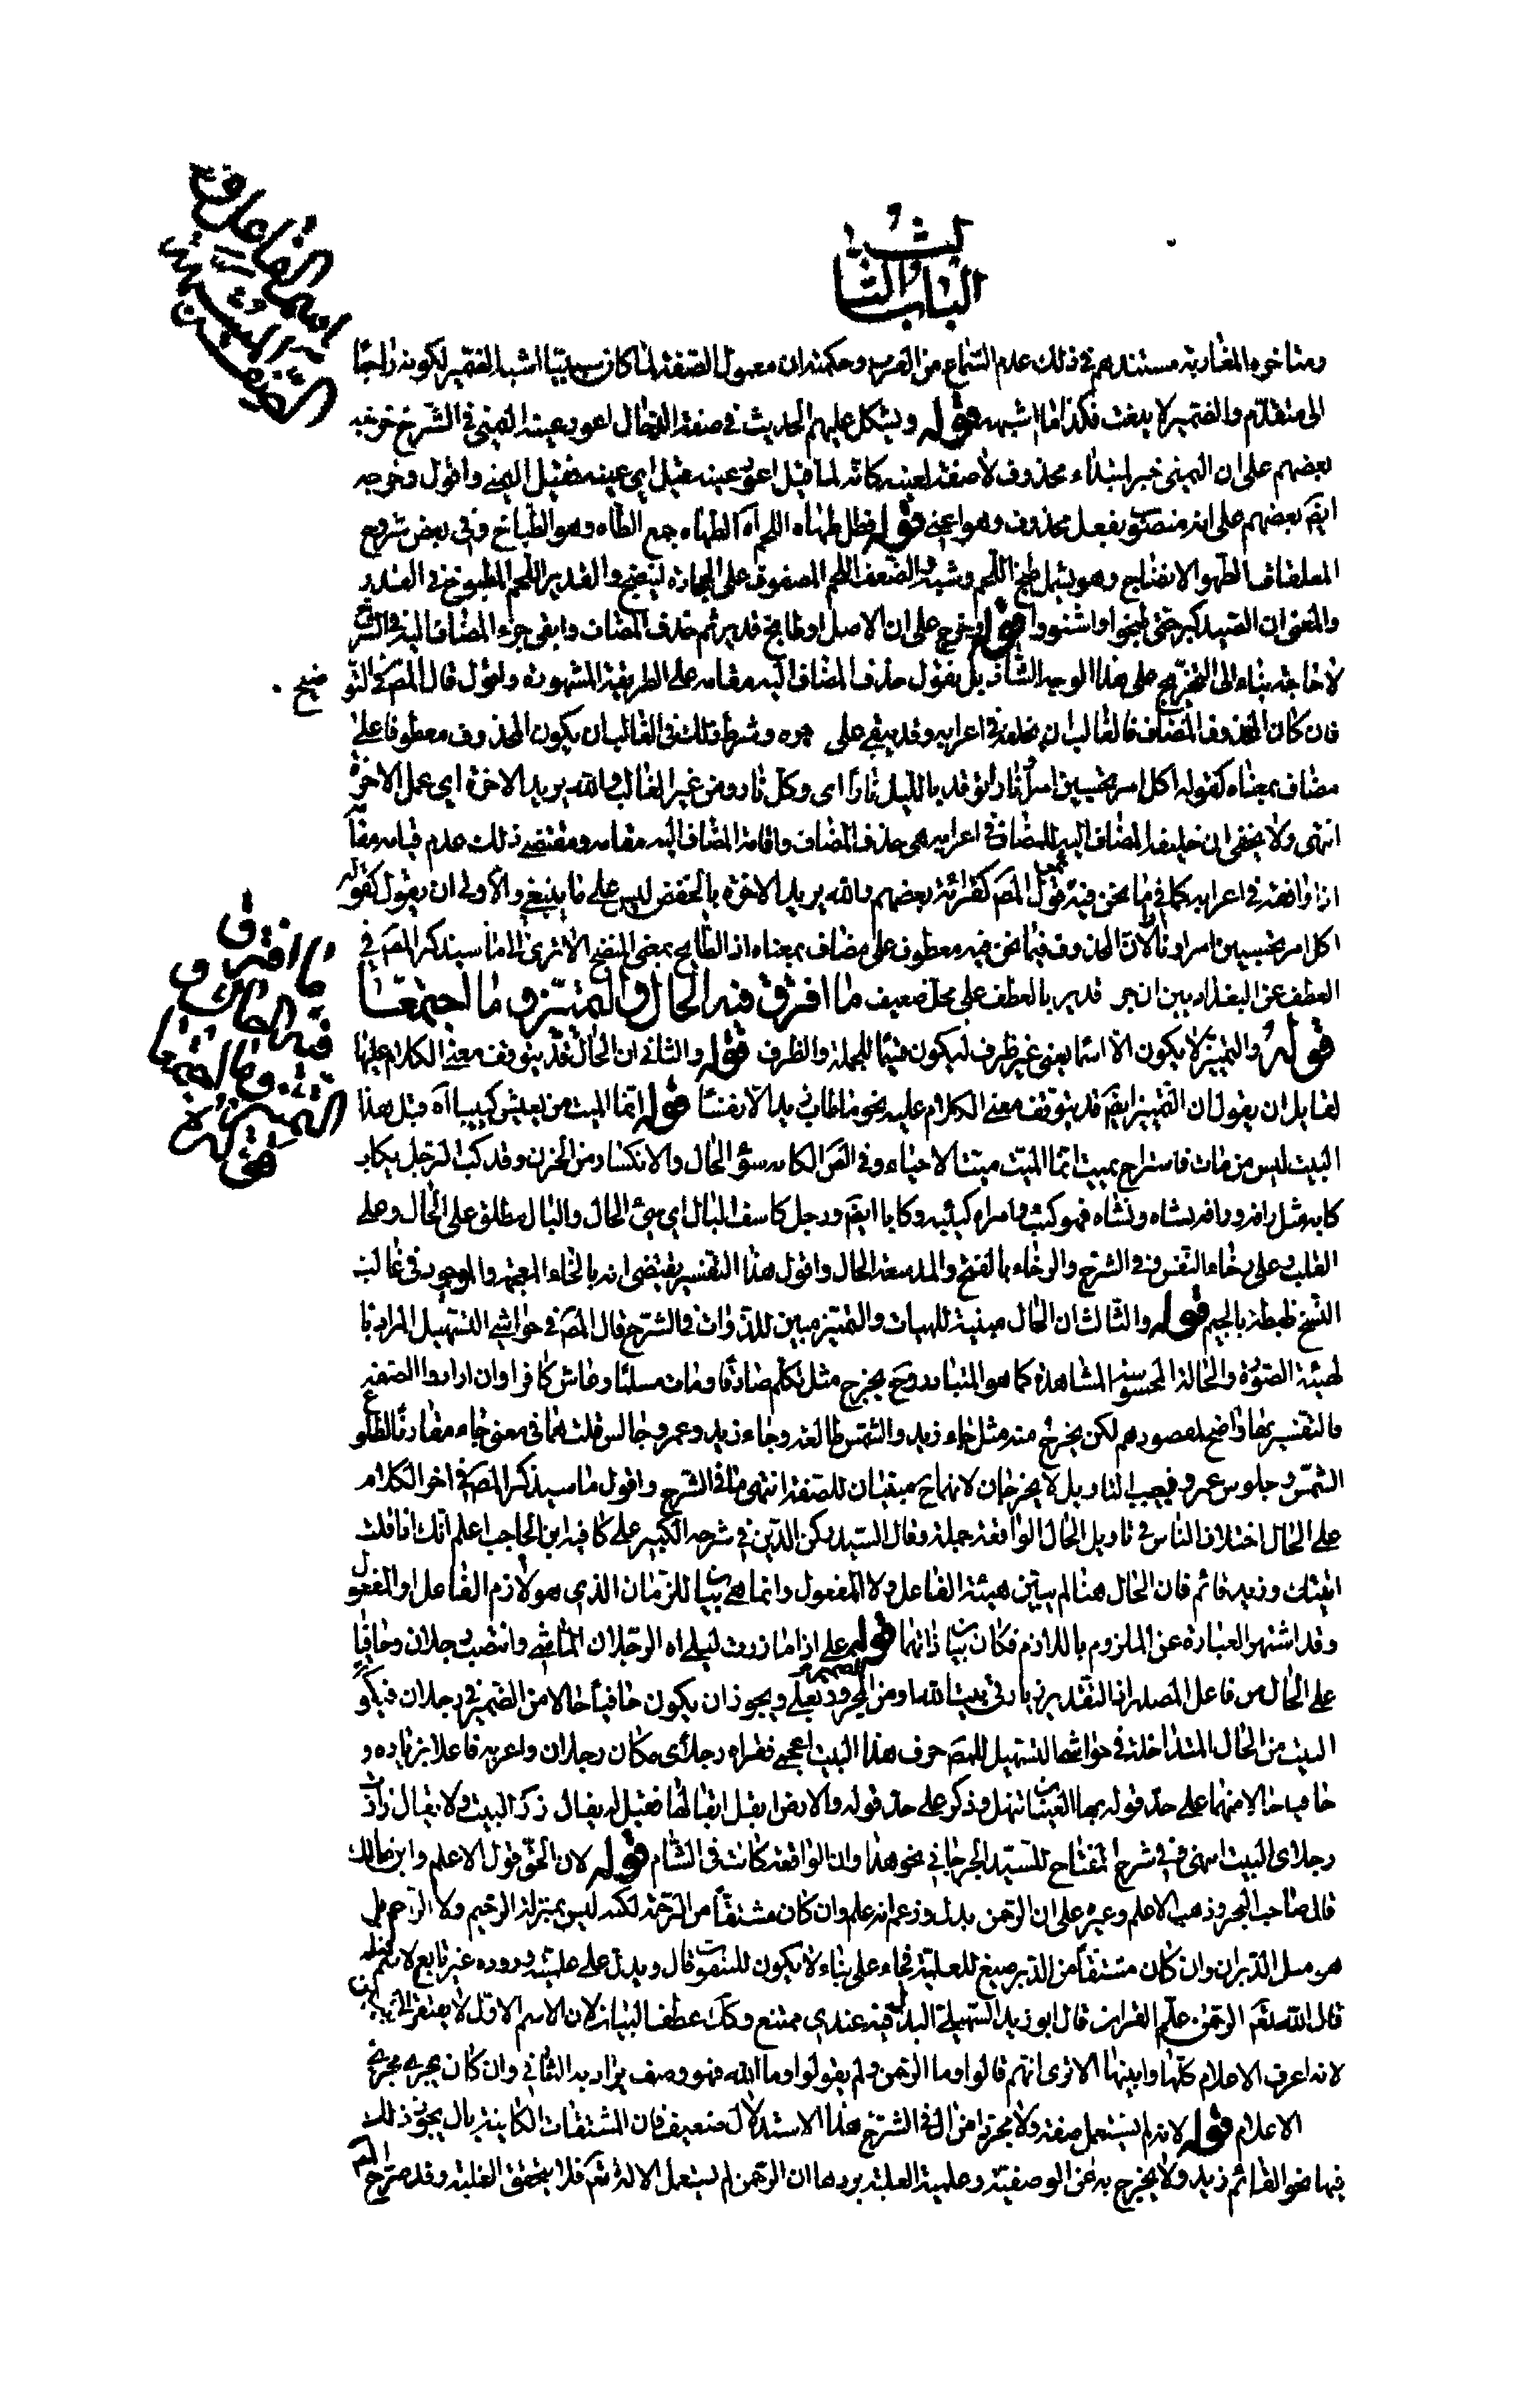 الباب الثالث
ومتأخروا المغاربة مستندهم في ذلك عدم السماع من العرب وحكمته ان معمول الصفة لما كان سببيا اشبه الضمير لكونه راجعا
الى متقدم والضمير لا ينعت فكذا ما اشبهه قوله ويشكل عليهم الحديث في صفة الدجال اعور عينه اليمنى في الشرح خرجه
بعضهم على ان اليمنى خبر لمبتداء محذوف لا صفة لعينه كانه لما قيل اعور عينه قيل اي عينه فقيل اليمنى واقول وخرجه
ايضا بعضهم على انه منصوب بفعل محذوف وهو اعنى قوله فظل طهاه اللحم آه الطهاه جمع الطاه وهو الطباخ وفي بعض شروح
المعلقات الطهو الانضاج وهو يشمل طبخ اللحم وشيه والضعيف اللحم المصفوف على الحجارة لينضج والقدير اللحم المطبوخ في القدر
والمعنى ان الصيد كثير حتى طبخوا واشتووا قوله وخرج على ان الاصل او طابخ قدير ثم حذف المضاف وابقى جر المضاف اليه في الشرح
لا حاجة بناء الى التخريج على هذا الوجه الشاذ بل نقول حذف المضاف اليه مقامه على الطريقة المشهورة واقول قال المص في التو ضيح
فان كان المحذوف المضاف فالغالب ان يخلفه في اعرابه وقد يبقى على جره وشرط ذلك في الغالب ان يكون المحذوف معطوفا على
مضاف بمعناه كقوله اكل امرء تحسبين امرأ ونار توقد بالليل نارا اى وكل نار ومن غير الغالب والله يريد الاخرة اي عمل الاخرة
انتهى ولا يخفى ان خليفة المضاف اليه للمضاف في اعرابه هي حذف المضاف واقامة المضاف اليه مقامه ومقتضى ذلك عدم قيامه مقامه
اذا وافقه في اعرابه كما في ما نحن فيه فقول المص كقرائة بعضهم والله يريد الاخرة بالخفض ليس على ما ينبغي والاولى ان يقول كقوله
اكل امرء تحسبين امرأ ونارا لان المحذوف فيما نحن فيه معطوف على مضاف بمعناه اذ الطابخ بمعنى المنضج الا ترى الى ما سيذكر المص في
العطف عن البغداديين ان جر قدير بالعطف على محل ضعيف ما افترق فيه الحال والتميز وما اجتمعا
قوله والتميز لا يكون الا اسما يعنى غير ظرف ليكون قسيما للجملة والظرف قوله والثاني ان الحال قد يتوقف معنى الكلام عليها
لقايل ان يقول ان التميز ايضا قد يتوقف معنى الكلام عليه نحو ما طاب زيد الا نفسا قوله انما الميت من يعيش كئيبا آه قبل هذا
البيت ليس من مات فاستراح بميت انما الميت ميت الاحياء وفي الص الكابة سوء الحال والانكسار من الحزن وقد كئب الرجل يكاب
كابة مثل رافه ورافة نشاه ونشاة فهو كئب وامراة كئيبة وكابا ايضا ورجل كاسف البال اي سيئ الحال والبال يطلق على الحال وعلى
القلب وعلى رخاء النفس في الشرح والرخاء بالفتح والمد سعة الحال واقول هذا التفسير يقتضى انه بالخاء المعجمة والموجود في غالب
النسخ ظبطه بالجيم قوله والثالث ان الحال مبينة للهيات والتميز مبين للذوات في الشرح قال المص في حواشي التسهيل المراد با
لهيئة الصورة والحالة المحسوسة المشاهدة كما هو المتبادر وح يخرج مثل تكلم صادقا ومات مسلما وعاش كافرا وان ارادوا الصفة
فالتفسير بها واضح لمقصودهم لكن يخرج منه مثل جاء زيد والشمس طالعة وجاء زيد وعمرو جالس قلت هما في معنى جاء مقارنا لطلوع
الشمس وجلوس عمرو فيجب التاويل لا يخرجان لانهما ح مبينان للصفة انتهى ما في الشرح واقول ما سيذكر المص في اخر الكلام
على الحال اختلاف الناس في تاويل الحال الواقعة جملة وقال السيد ركن الدين في شرحه الكبير على كافية ابن الحاجب اعلم انك اذا قلت
اتيتك وزيد قائم فان الحال هنا لم يبين هيئة الفاعل ولا المفعول وانما هي بيان للزمان الذي هو لازم الفاعل او المفعول
وقد اشتهر العبارة عن الملزوم باللازم فكان بيانا ذاتهما قوله على اذا ما زرت ليلى آه الرجلان الماشي وانتصب رجلان وحافيا
على الحال من فاعل المصدر اذ التقدير زيارتي بيت الله او من المجرور بعلي ويجوز ان يكون حافيا حالا من الضمير في رجلان فيكو
البيت من الحال المتداخلة في حواشي التسهيل للمص حرف هذا البيت اعجمى فقراه رجلاى مكان رجلان واعربه فاعلا بزياده و
حافيا حالا منهما على حد قوله بها العينان تنهل وذكر على حد قوله والارض ابقل ابقالها فقيل له يقال زر البيت ولا يقال زارت
رجلاى البيت انتهى وفي شرح المفتاح للسيد الجرجاني نحو هذا وان الواقعة كانت في الشام قوله لان الحق قول الاعلم وابن مالك
قال صاحب البحر وذهب الاعلم وغيره على ان الرحمن بدل وزعم انه علم وان كان مشتقا من الرحمة لكنه ليس بمنزلة الرحيم ولا الراحم بل
هو مثل الدبران وان كان مشتقا من الدبر صيغ للعلمية فجاء على بناء لا يكون للنعوت قال ويدل على علميته وروده غير تابع لاسم قبله
قال الله تعم الرحمن علم القران قال ابو زيد السهيلي البدل فيه عندي ممتنع وكك عطف البيان لان الاسم الاول لا يفتقر الى تبيين
لانه اعرف الاعلام كلها وابينها الا ترى انهم قالوا وما الرحمن ولم يقولوا وما الله فهو وصف يراد به الثناء وان كان يجرى مجرى
الاعلام قوله لانه لم يستعمل صفة ولا مجردا من ال في الشرح هذا الاستدلال ضعيف فان المشتقات الكاينة بال يجوز ذلك
فيها نحو القائم زيد ولا يخرج به عن الوصفية وعلمية الغلبة يردها ان الرحمن لم يستعمل الا له تعم فلا يتحقق الغلبة وقد صرح المص
اسم الفاعل
الصفة المشبهة
ما افترق
فيه الحال و
التميز وما اجتمعا
قوله